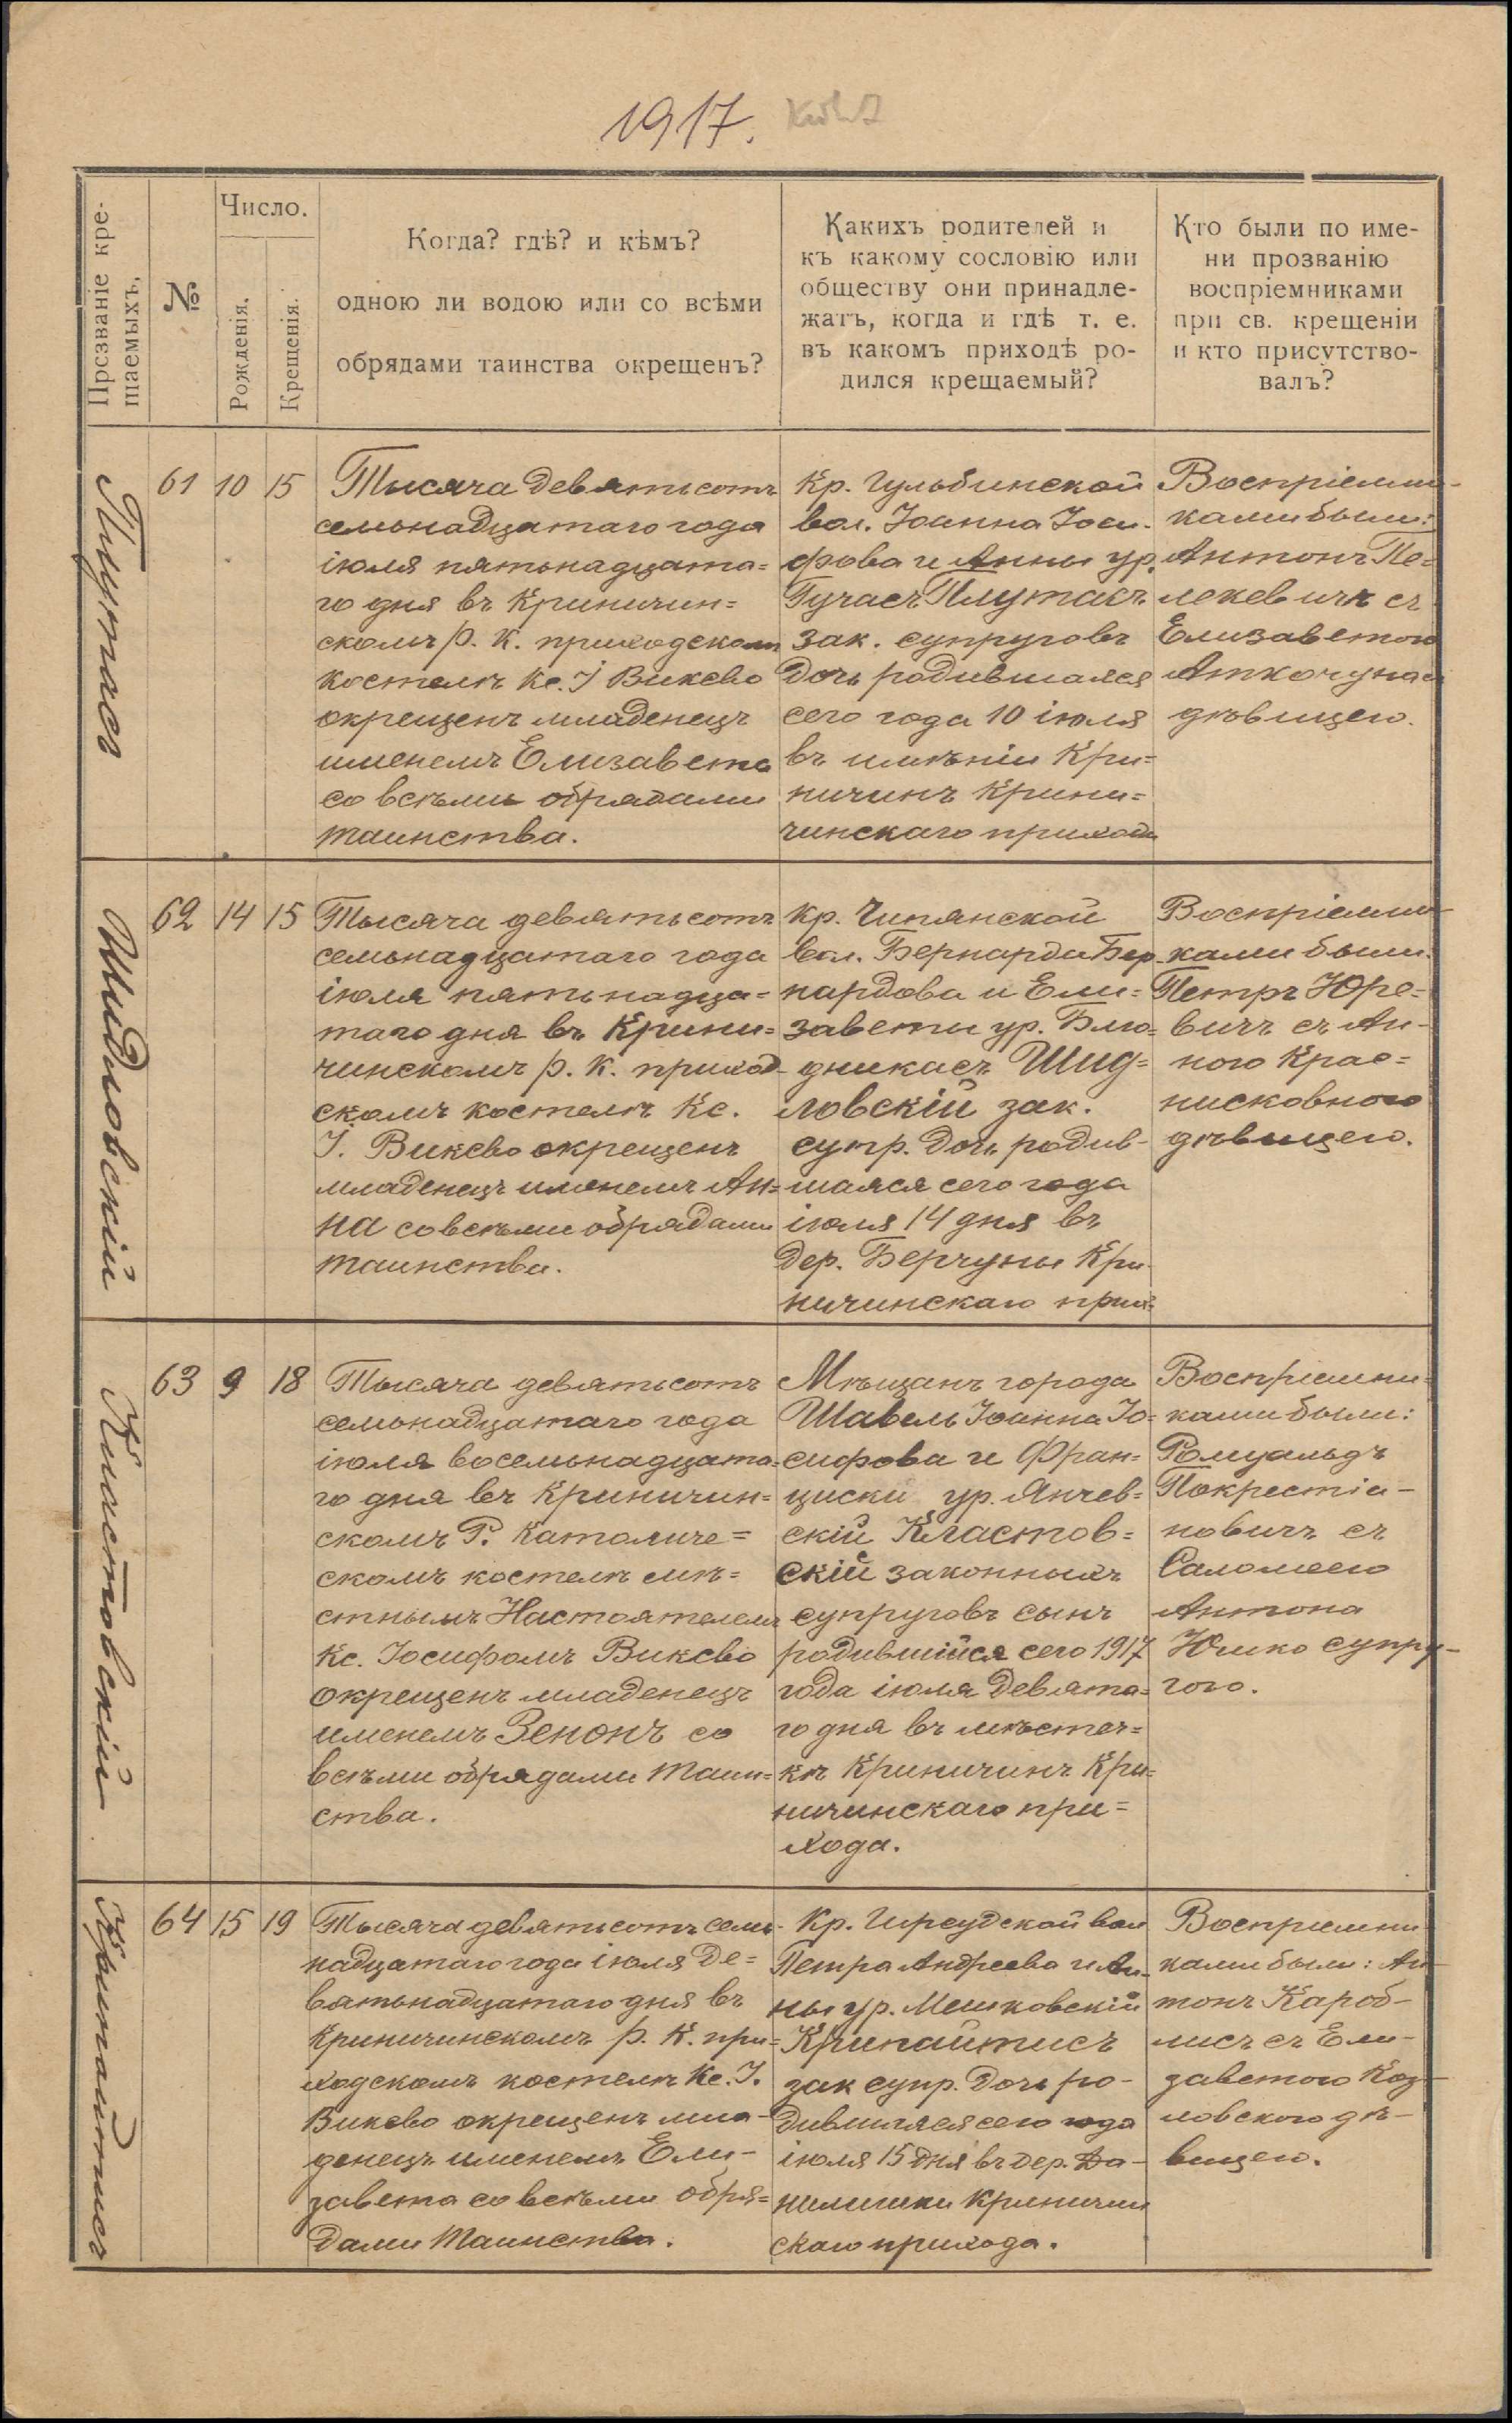 1917.
Прозваніе кре-
щаемыхъ,
№
Число.
Рожденія.
Крещенія.
Когда? гдѣ? и кѣмъ?
одною ли водою или со всѣми
обрядами таинства окрещенъ?
Какихъ родителей и
къ какому сословію или
обществу они принадле-
жатъ, когда и гдѣ т. е.
въ какомъ приходѣ ро-
дился крещаемый?
Кто были по име-
ни прозванію
воспріемниками
при св. крещеніи
и кто присутство-
валъ?
Плутасъ
61 10 15
Тысяча девятьсотъ
семьнадцатаго года
іюля пятьнадцата=
го дня въ Криничин=
скомъ р. к. приходскомъ
костелѣ Кс. І Виксво
окрещенъ младенецъ
именемъ Елизавета
со всѣми обрядами
таинства.
Кр. Гульбинской
вол. Іоанна Іоси-
фова и Анны ур.
Гучасъ Плутасъ
зак. супруговъ
дочь родившаяся
сего года 10 іюля
въ имѣніи Кри=
ничинъ Крини=
чинскаго прихода
Воспріемни-
ками были:
Антонъ Пе=
лекевичъ съ
Елизаветою
дѣвицею.
Шидловскій
62 14 15
Тысяча девятьсотъ
семьнадцатаго года
іюля пятьнадца=
таго дня въ Крини=
чинскомъ р. к. приход-
скомъ костелѣ Кс.
І. Виксво окрещенъ
младенецъ именемъ Ан=
на со всѣми обрядами
таинства.
Кр. Чипянской
вол. Бернарда Бер-
нардова и Ели=
заветы ур. Блю=
дникасъ Шид=
ловскій зак.
супр. дочь родив-
шаяся сего года
іюля 14 дня въ
дер. Берчуны Кри-
ничинскаго прих.
Воспріемни-
ками были:
Петръ Юре=
вичъ съ Ан-
ною Крас=
нисковною
дѣвицею.
Кластовскій
63 9 18
Тысяча девятьсотъ
семьнадцатаго года
іюля восемьнадцата=
го дня въ Криничин=
скомъ Р. Католиче=
скомъ костелѣ мѣ=
стнымъ Настоятелемъ
Кс. Іосифомъ Виксво
окрещенъ младенецъ
именемъ Зенонъ со
всѣми обрядами таин=
ства.
Мѣщанъ города
Шавель Іоанна Іо=
сифова и Фран=
циски ур. Янчев=
скій Кластов=
скій законныхъ
супруговъ сынъ
родившійся сего 1917
года іюля девята=
го дня въ мѣстеч=
кѣ Криничинъ Кри=
ничинскаго при=
хода.
Воспріемни=
ками были:
Ромуальдъ
Покрестіа-
новичъ съ
Саломеею
Антона
Юшко супру-
гою.
Крипайтисъ
64 15 19
Тысяча девятьсотъ семь-
надцатаго года іюля де=
вятьнадцатаго дня въ
Криничинскомъ р. К. при=
ходскомъ костелѣ Кс. І.
Виксво окрещенъ мла-
денецъ именемъ Ели-
завета со всѣми обря=
дами таинства.
Петра Андреева и Ан-
ны ур. Мешковскій
Крипайтисъ
зак супр. дочь ро-
дившаяся сего года
іюля 15 дня въ дер. Да-
нилишки Криничин
скаго прихода.
Воспріемни
ками были: Ан-
тонъ Кароб-
лисъ съ Ели-
заветою Коз-
ловскою дѣ-
вицею.